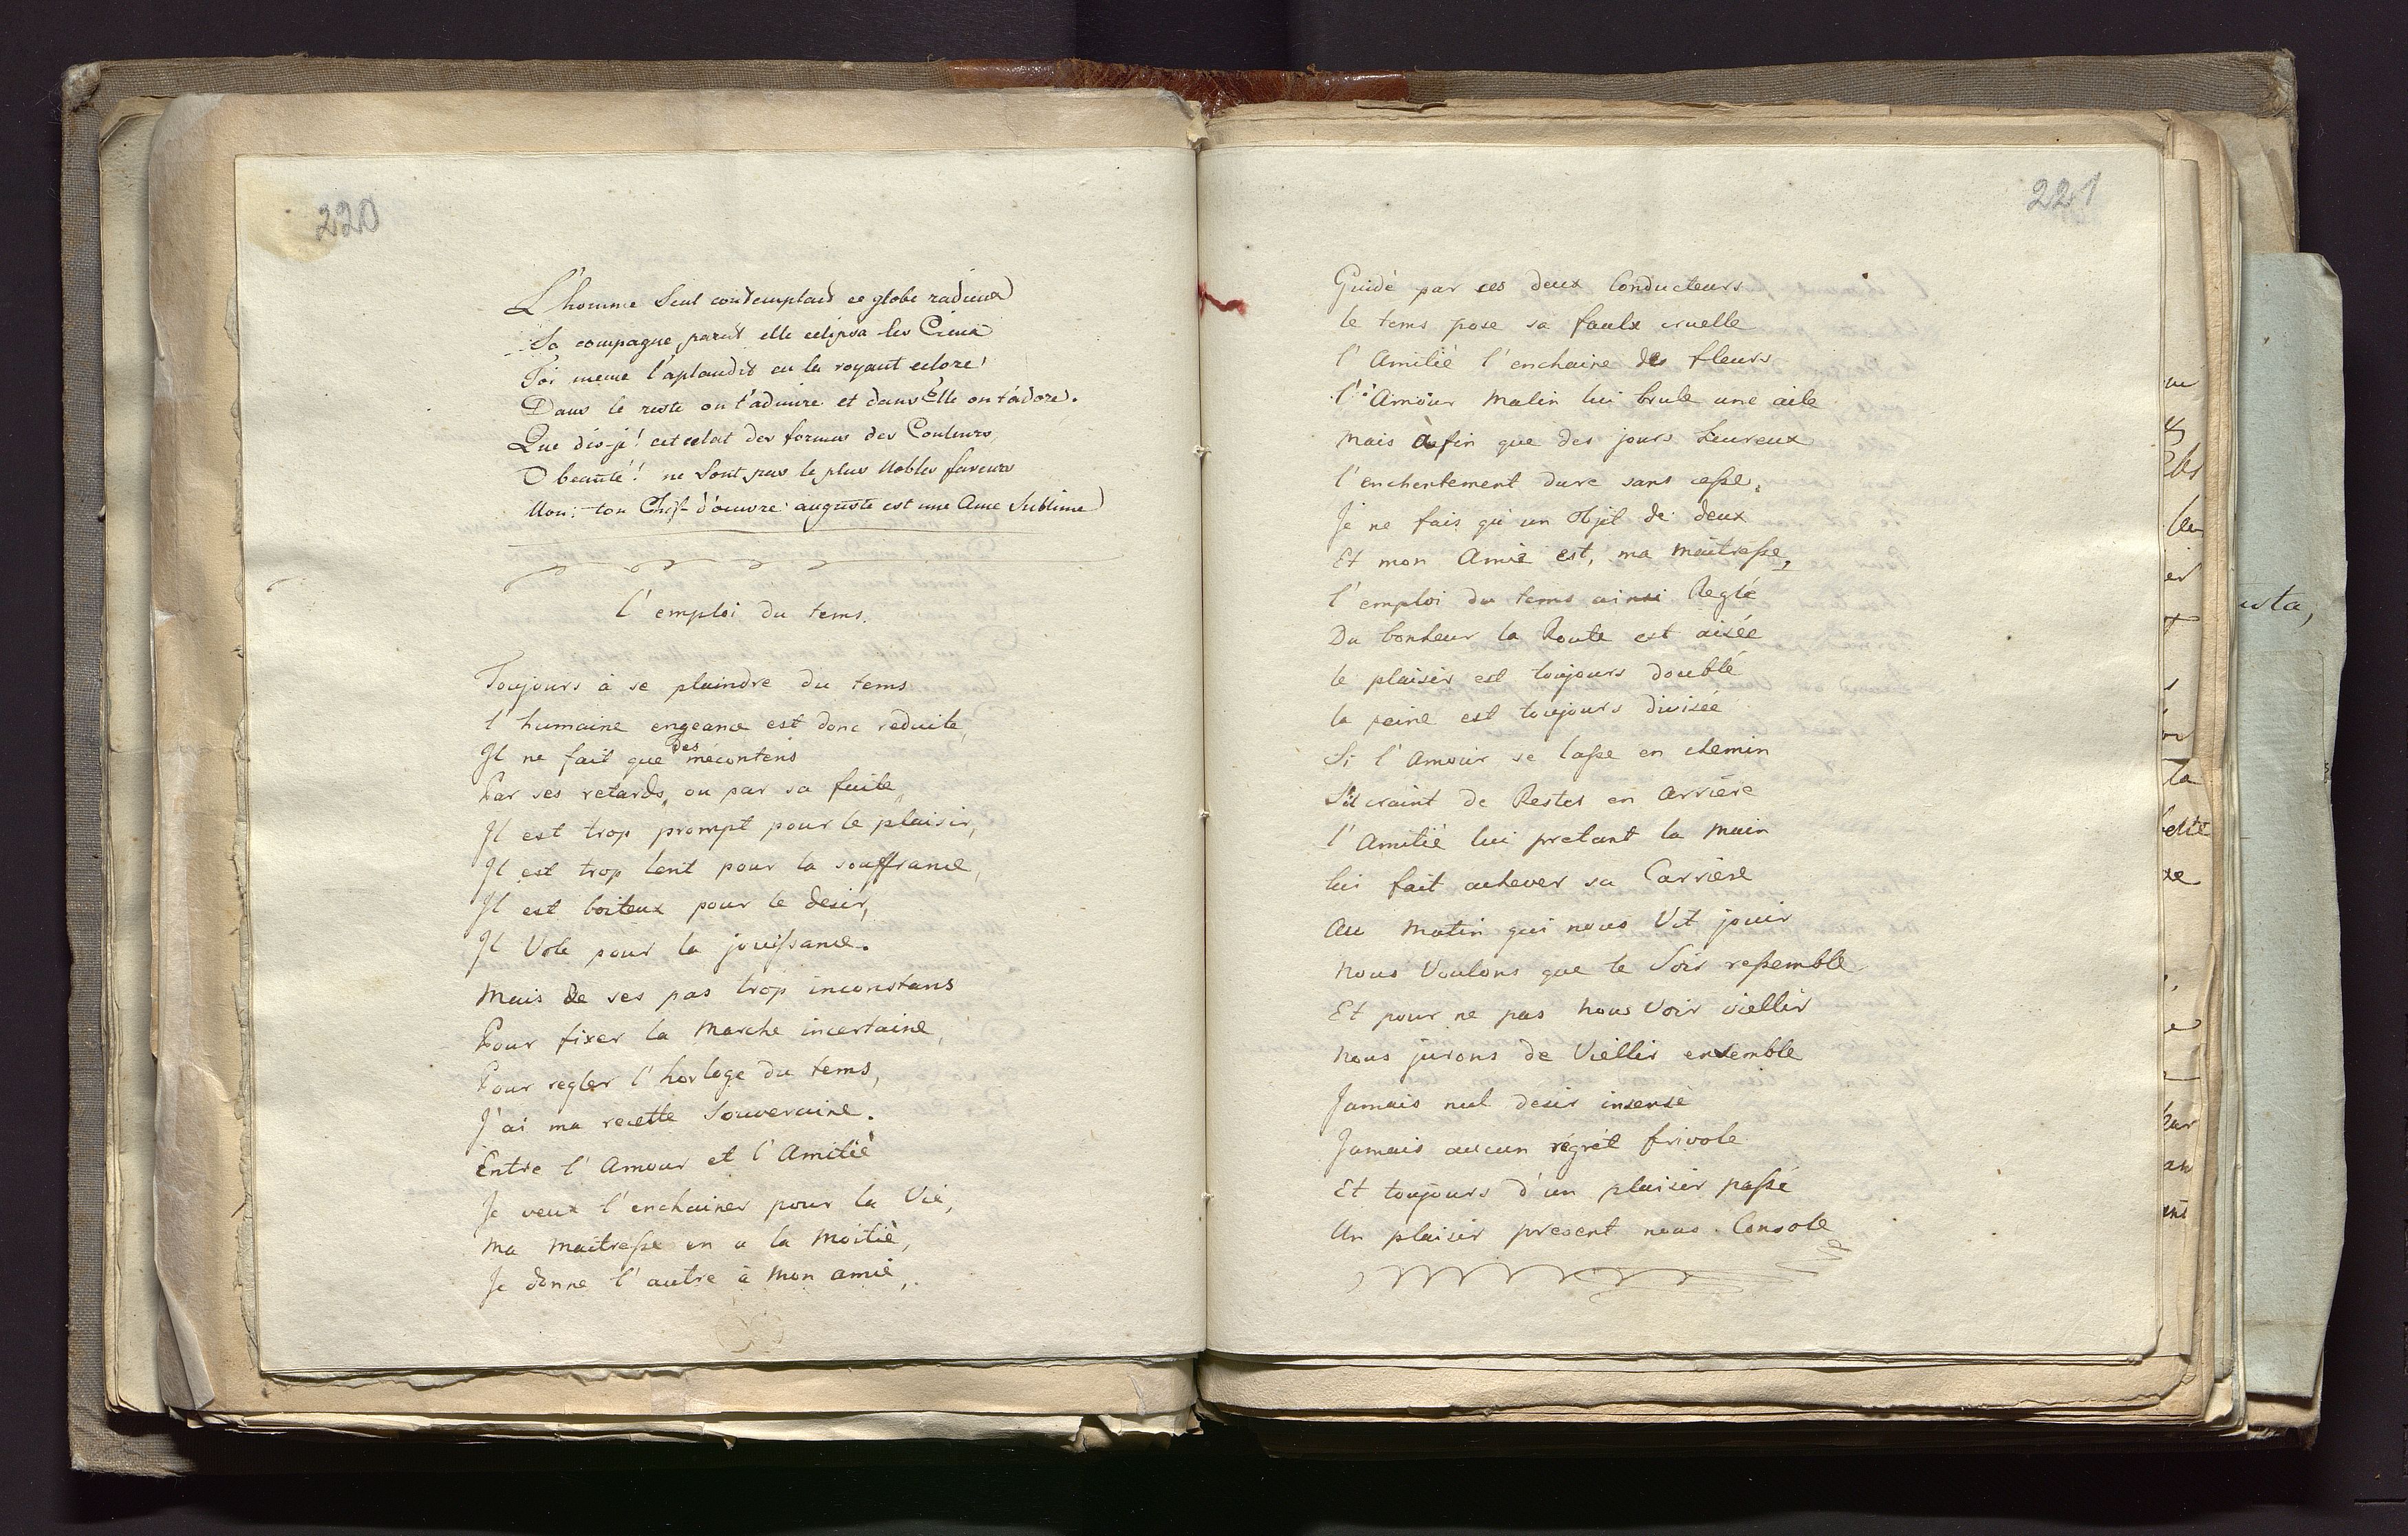 220
L'homme Seul contemplait ce globe radieux
Sa compagne parut elle eclipsa les Cieux
Toi meme l'aplaudit en la voyant eclore!
Dans le reste on t'admire et dans Elle on t'adore.
Que dis-je! cet eclat des formes des Couleurs
O beauté! ne Sont pas le plus Nobles faveurs
Non: ton Chef-d'oeuvre auguste est une Ame Sublime
l'emploi du tems.
Toujours à se plaindre du tems
l'humaine engeance est donc reduite,
Il ne fait que des mécontens
Par ses retards, ou par sa fuite,
Il est trop prompt pour le plaisir,
Il est trop lent pour la souffrance,
Il est boiteux pour le desir,
Il Vole pour la jouissance.
Mais de ses pas trop inconstans
Pour fixer la Marche incertaine,
Pour regler l'horloge du tems,
J'ai ma recette Souveraine.
Entre l'Amour et l'Amitié
Je veux l'enchainer pour la Vie,
Ma Maitresse en a la Moitié,
Je donne l'autre à Mon amie,
221
Guidé par ces deux Conducteurs
le tems pose sa faulx cruelle
l'Amitié l'enchaine des fleurs
l'Amour Malin lui brule une aile
Mais à fin que des jours heureux
l'enchentement dure sans cesse,
Je ne fais qu'un Objet de deux
Et mon Amie est, ma Maitresse,
l'emploi du tems ainsi Reglé
Du bonheur la Route est aisée
le plaisir est toujours doublé
la peine est toujours divisée
Si l'Amour se lasse en chemin
S'il craint de Rester en Arriere
l'Amitié lui pretant la Main
lui fait achever sa Carriere
Au Matin qui nous Vit jouir
Nous Voulons que le Soir ressemble
Et pour ne pas Nous Voir viellir
Nous jurons de Viellir ensemble
Jamais nul desir insensé
Jamais aucun régrét frivole
Et toujours d'un plaisir passé
Un plaisir present nous Console